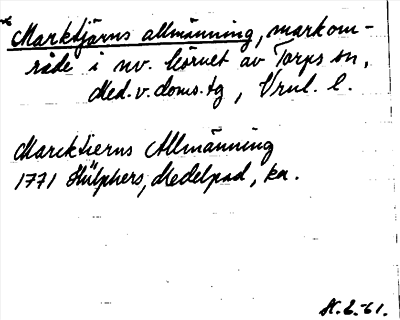 Marktjärns allmänning, markom-
råde i nv. hörnet av Torps sn,
Med. v. doms. tg, Vrnl. l.
Marcktierns Allmänning
1771 Hülphers, Medelpad, ka.
H. E. -61.